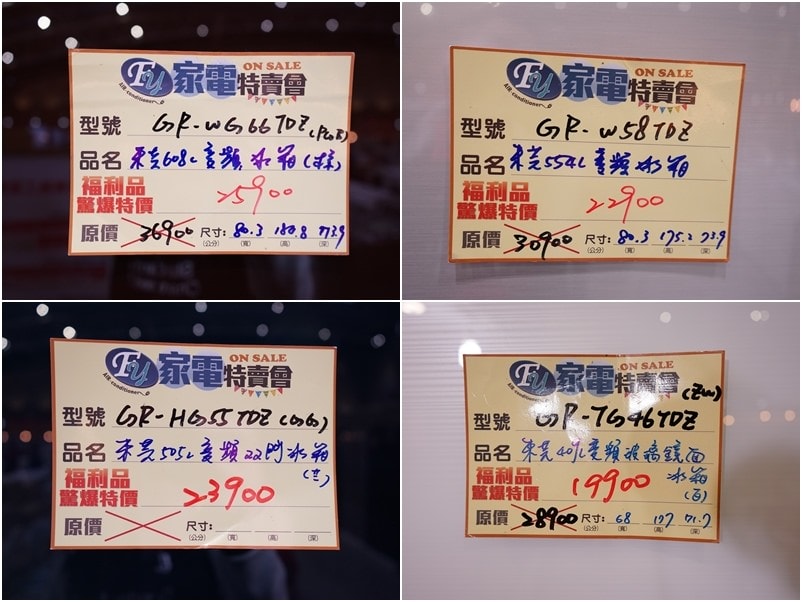 Fy 家電特賣會 ON SALE
AIR conditioner
型號 GR-WG66TDZ
品名 東芝608L變頻冰箱
福利品
驚爆特價 25900
原價 36900 尺寸: 80.3 180.8 73.9
(公分) (寬) (高) (深)
Fy 家電特賣會 ON SALE
AIR conditioner
型號 GR-W58TDZ
品名 東芝554L變頻冰箱
福利品
驚爆特價 22900
原價 30900 尺寸: 80.3 175.2 73.9
(公分) (寬) (高) (深)
Fy 家電特賣會 ON SALE
AIR conditioner
型號 GR-HG55TDZ (GG)
品名 東芝505L變頻雙門冰箱
福利品
驚爆特價 23900
原價 尺寸:
(公分) (寬) (高) (深)
Fy 家電特賣會 ON SALE
AIR conditioner
(ZW)
型號 GR-TG46TDZ
品名 東芝409L變頻玻璃鏡面
冰箱
(白)
福利品
驚爆特價 19900
原價 28900 尺寸: 68 177 71.7
(公分) (寬) (高) (深)